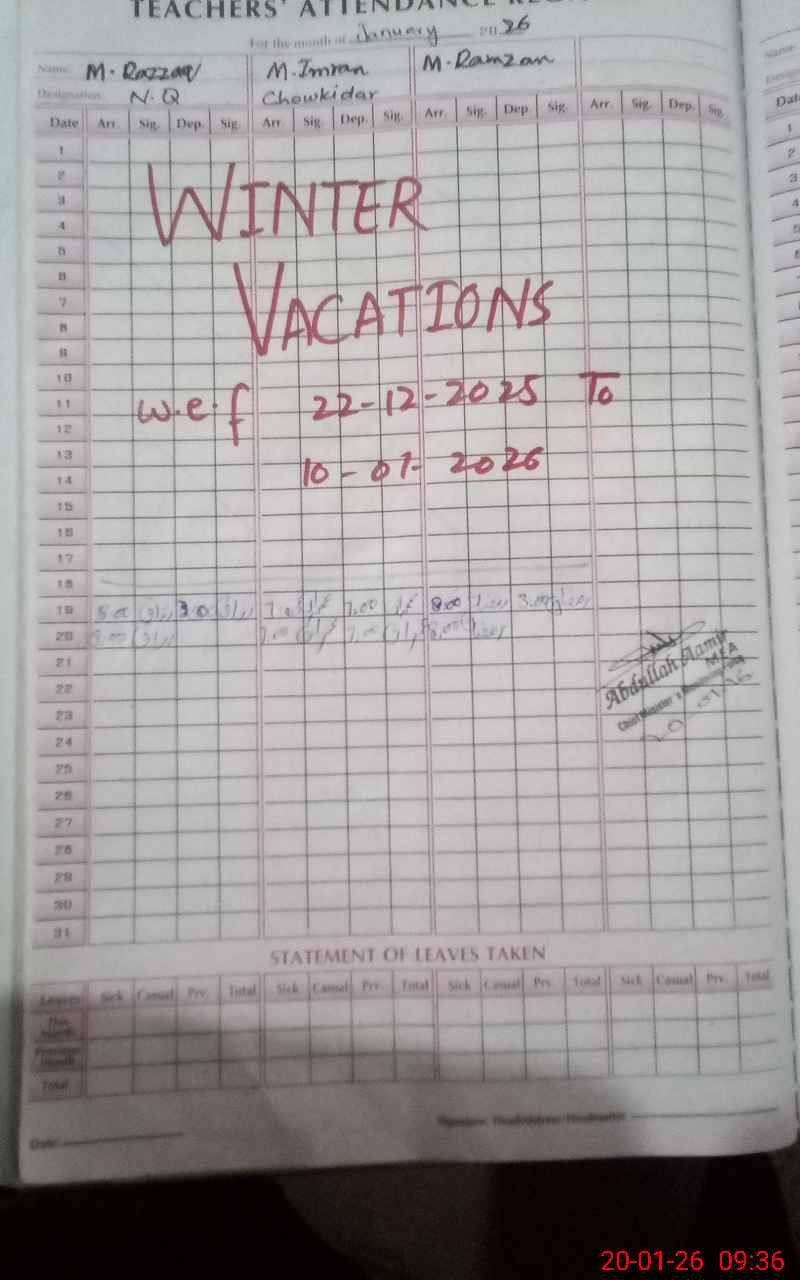 TEACHERS' ATTENDANCE
For the month of January 2026
Name M. Razzaq M. Imran M. Ramzan
Designation N.Q Chowkidar
Date Arr. Sig. Dep. Sig. Arr. Sig. Dep. Sig. Arr. Sig. Dep. Sig. Arr. Sig. Dep. Sig.
1
2
3
4
5
6
7
8
9
10
11
12
13
14
15
16
17
18
19 8.00 3.0 7.00 8.00 3.00
20 8.00 7.00 7.00 8.00
21
22
23
24
25
26
27
28
29
30
31
WINTER
VACATIONS
w.e.f 22-12-2025 To
10-01-2026
Abdullah Aamir
MEA
STATEMENT OF LEAVES TAKEN
Leaves Sick Casual Prv. Total Sick Casual Prv. Total Sick Casual Prv. Total Sick Casual Prv. Total
This Month
Previous Month
Total
Date:
20-01-26 09:36